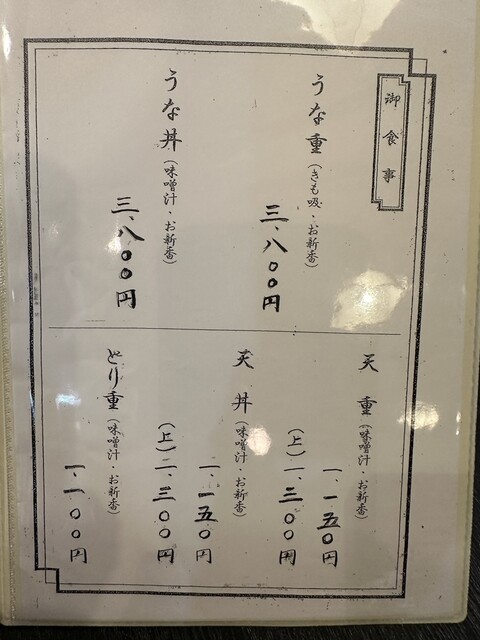 御食事
うな重（きも吸・お新香）
三、八〇〇円
うな丼（味噌汁・お新香）
三、八〇〇円
天重（味噌汁・お新香）
一、一五〇円
（上）一、三〇〇円
天丼（味噌汁・お新香）
一、一五〇円
（上）一、三〇〇円
とり重（味噌汁・お新香）
一、一〇〇円